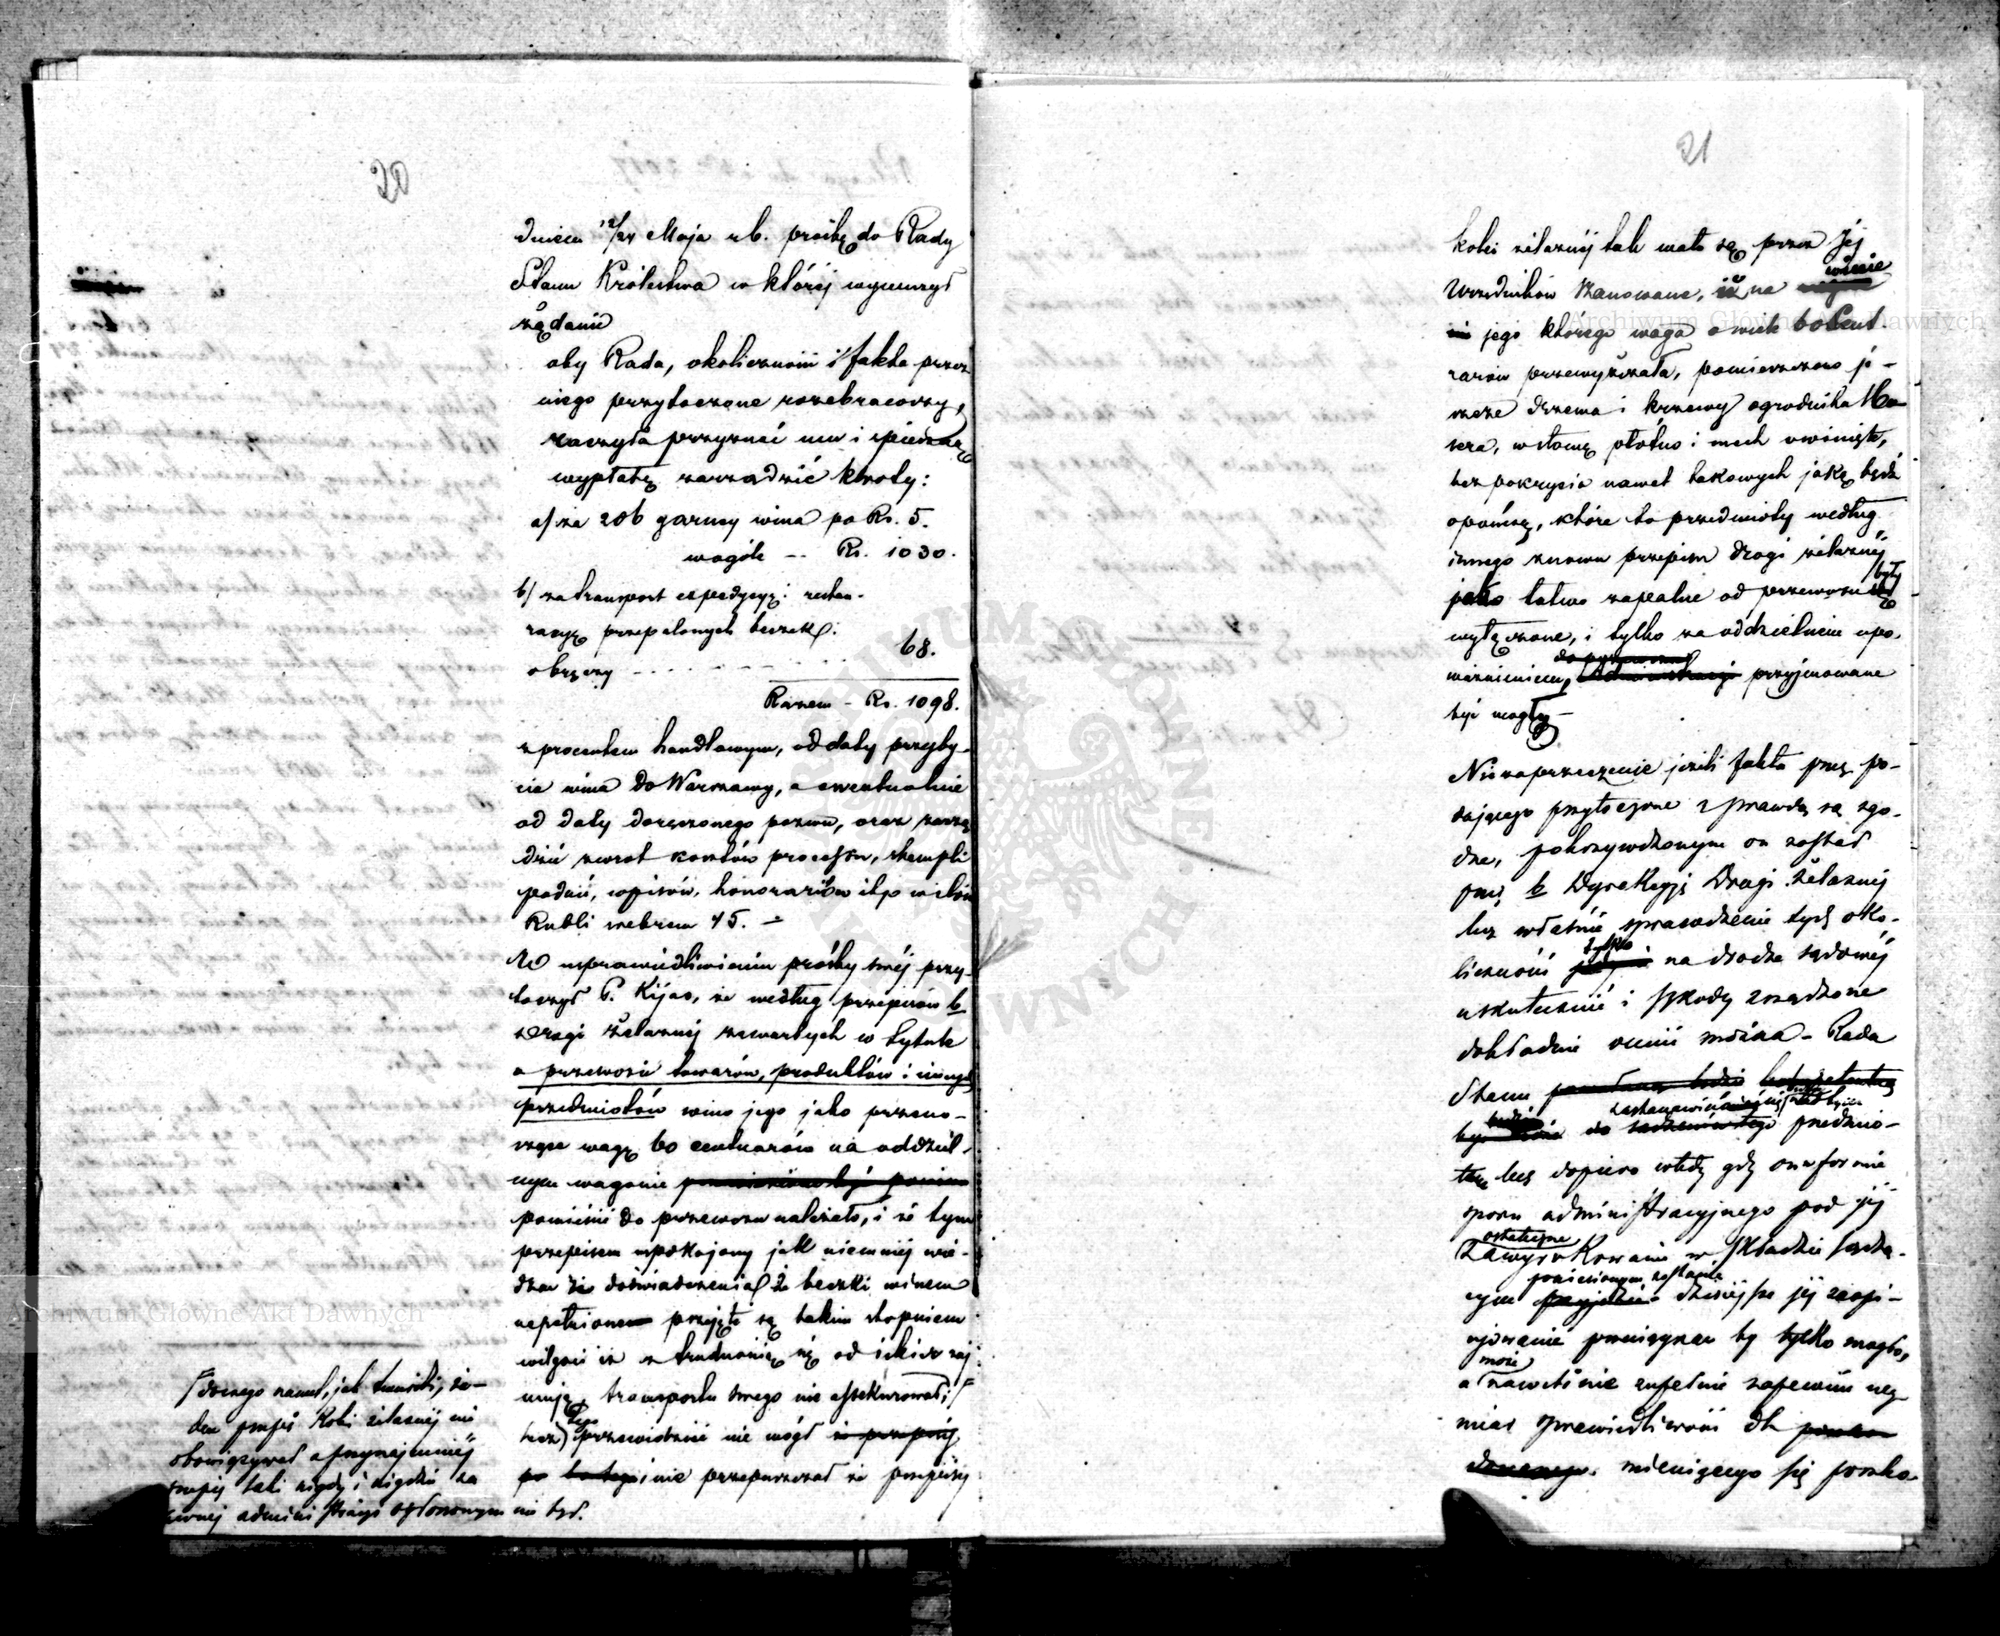 20
dniem 12/24 Maja r.b. prośbę do Rady
Stanu Królestwa w której wynurzył
żądanie
aby Rada, okoliczności i fakta przez
niego przytoczone rozebrawszy,
raczyła przyznać mu i spieszną
wypłatę zarządzić kwoty:
a/ za 206 garncy wina po Rs. 5.
wogóle -- Rs. 1030.
b/ za transport expedycyę: restau-
racyę przepalonych beczek:
obręczy - - - - - - - 68.
Razem - Rs. 1098.
z procentem handlowym, od daty przyby-
cia wina do Warszawy, a ewentualnie
od daty doręczonego pozwu, oraz zarzą
dzić zwrot kosztów processu, stempli
podań, wpisów, honorariów itp w ilości
Rubli srebrem 75. -
W usprawiedliwieniu prośby swéj przy-
toczył P. Kijas, że według przepisów b
Drogi Żelaznéj zawartych w tytule
o przewozie towarów, produktów i innych
przedmiotów wino jego jako przeno-
szące wagę 60 centnarów na oddziel-
nym wagonie
pomieścić do przewozu należało, i że tym
przepisem uspokojony jak niemniéj wie-
dząc z doświadczenia że beczki winem
napełnione przyjęte są takim stopniem
wilgoci iż z trudnością się od iskier zaj
mują, transportu swego nie assekurował;
lecz tego przewidzieć nie mógł
i nie przepuszczał że przepisy
/ dawnego nawet, jak twierdzi, ża-
den przepis Kolei żelaznéj nie
obowiązywał a przynajmniéj
przepis taki nigdy i nigdzie za
dawnej administracyi ogłoszonym nie był.
21
kolei żelaznéj tak mało są przez Jéj
Urzędników szanowane, iż na winie
jego którego waga o wiele 60 Cent.
narów przewyższała, pomieszczono je-
szcze drzewa i krzewy ogrodnika
w słomę płótno i mech owinięte,
bez pokrycia nawet takowych jaką bądź
oponą, które to przedmioty według
innego znowu przepisu Drogi żelaznéj
jako łatwo zapalne od przewozu były
wyłączone, i tylko za oddzielnem upo-
ważnieniem przyjmowane
być mogły -
Niezaprzeczenie jeżeli fakta przez po-
dającego przytoczone z prawdą są zgo-
dne, pokrzywdzonym on został
przez b Dyrekcyję Drogi Żelaznéj
lecz właśnie sprawdzenie tych oko-
liczności tylko na drodze sądowéj
uskutecznić i szkody zrządzone
dokładnie ocenić można - Rada
Stanu
przedmio-
tem lecz dopiero wtedy gdy on w formie
sporu administracyjnego pod jéj
ostateczne
Zawyrokowanie w Składzie Sądzą-
cym poniesionym zostanie dzisiejsze jéj zaopi-
njowanie tylko mogło,
a może nawet nie zupełnie zapewnić wy-
miar sprawiedliwości dla
mieniącego się poszko-